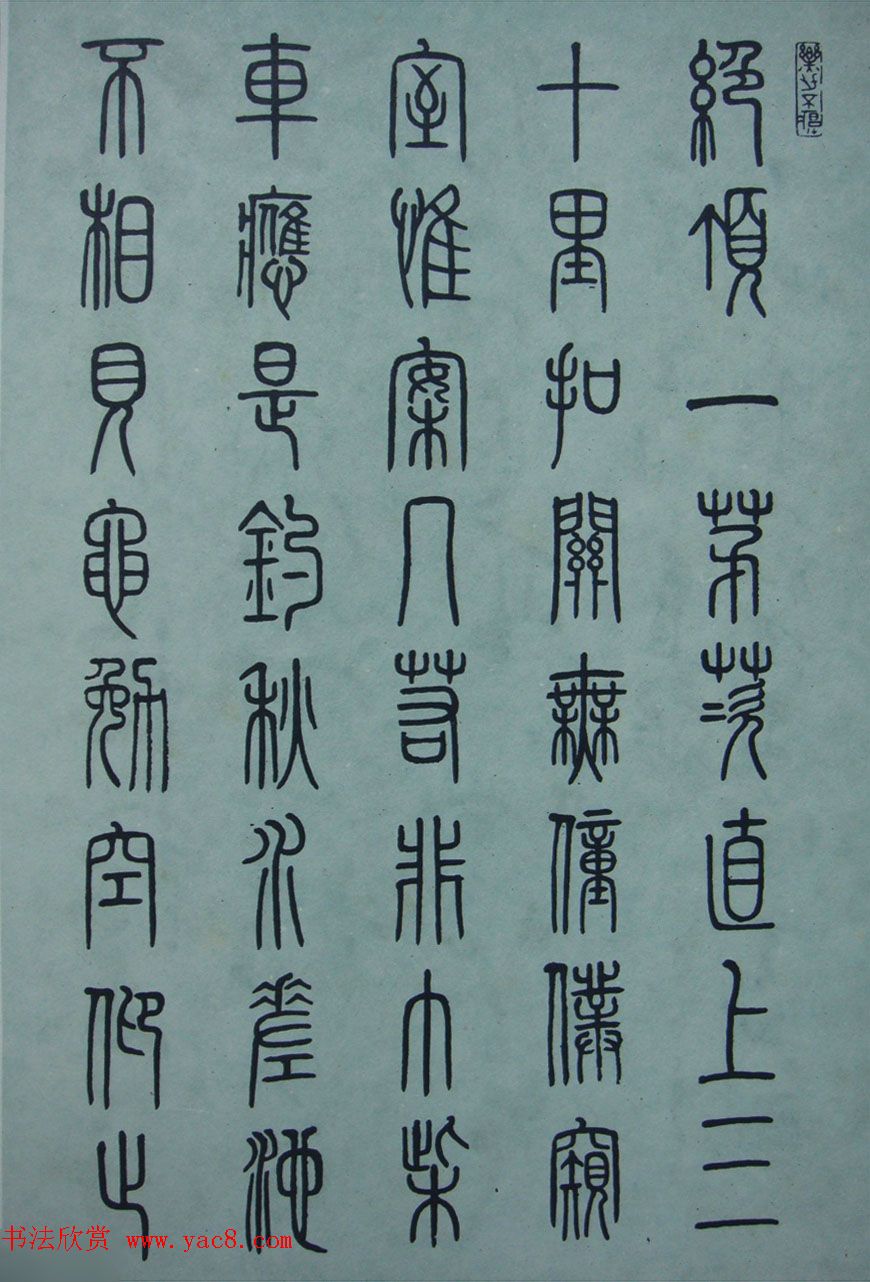 絕頂一茅茨直上三
十里扣關無僮僕窺
室惟案几若非巾柴
車應是釣秋水差池
不相見黽勉空仰止
书法欣赏 www.yac8.com